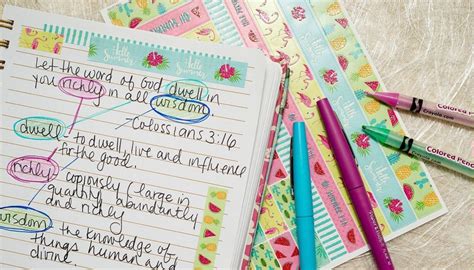 Hello Summer
Let the word of God dwell in
you richly in all wisdom
- Colossians 3:16
dwell - to dwell, live and influence
for the good.
richly - copiously (large in
quantity abundantly
and richly
wisdom - the knowledge of
things human and
divine.
Hello Summer
Crayola
Colored Pencil
Colored Pencil